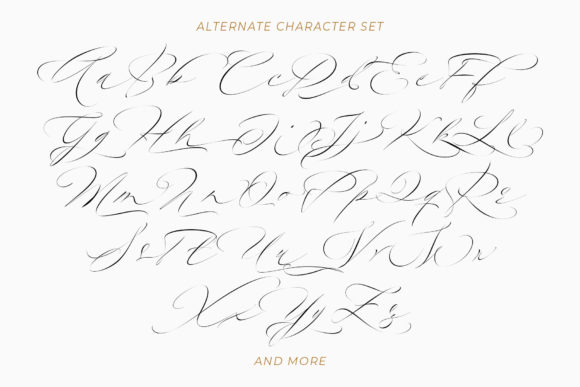 ALTERNATE CHARACTER SET
Aa Bb Cc Dd Ee Ff
Gg Hh Ii Jj Kk Ll
Mm Nn Oo Pp Qq Rr
Ss Tt Uu Vv Ww
Xx Yy Zz
AND MORE